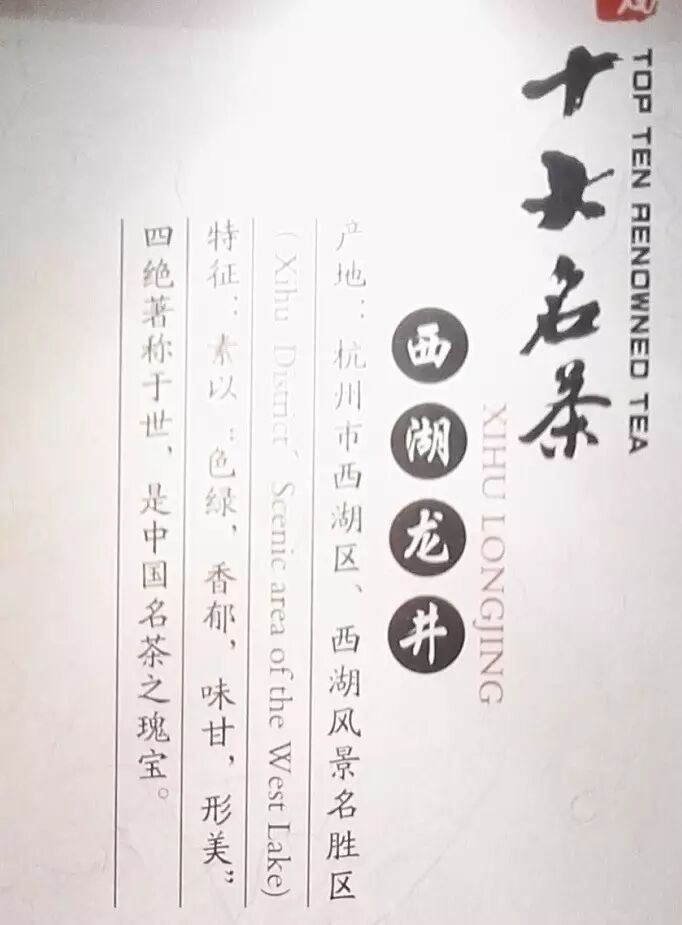 TOP TEN RENOWNED TEA
十大名茶
XIHU LONGJING
西湖龙井
产地：杭州市西湖区、西湖风景名胜区
（Xihu District、Scenic area of the West Lake)
特征：素以“色绿，香郁，味甘，形美”
四绝著称于世，是中国名茶之瑰宝。